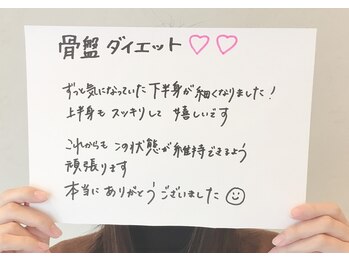 骨盤ダイエット♡♡
ずっと気になっていた下半身が細くなりました！
上半身もスッキリして嬉しいです
これからもこの状態が維持できるよう
頑張ります
本当にありがとうございました☺